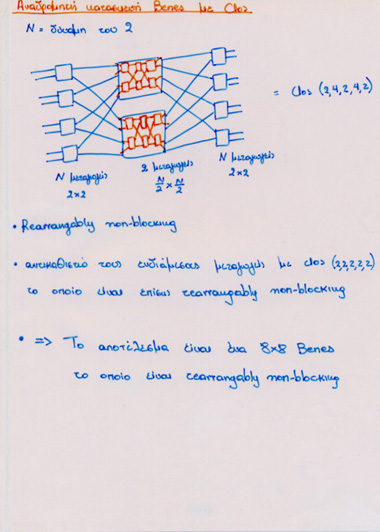 Αναδρομική κατασκευή Benes με Clos
N = δύναμη του 2
= Clos (2,4,2,4,2)
N μεταγωγείς
2×2
2 μεταγωγείς
N/2 × N/2
N μεταγωγείς
2×2
• Rearrangably non-blocking
• αντικαθιστώ τους ενδιάμεσους μεταγωγείς με clos (2,2,2,2,2)
το οποίο είναι επίσης rearrangably non-blocking
• => Το αποτέλεσμα είναι ένα 8×8 Benes
το οποίο είναι rearrangably non-blocking